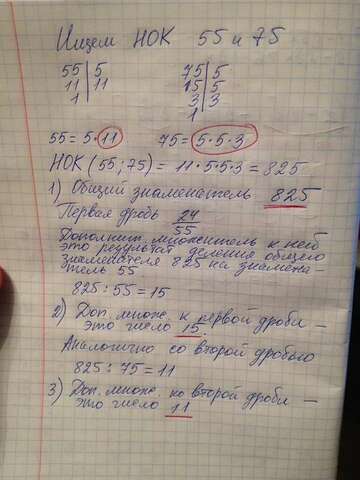 Ищем НОК 55 и 75
55 | 5 75 | 5
11 | 11 15 | 5
1 3 | 3
1
55 = 5·11 75 = 5·5·3
НОК (55; 75) = 11·5·5·3 = 825
1) Общий знаменатель 825
Первая дробь 24/55
Дополнит. множитель к ней
это результат деления общего
знаменателя 825 на знамена-
тель 55
825 : 55 = 15
2) Доп. множ. к первой дроби —
это число 15.
Аналогично со второй дробью
825 : 75 = 11
3) Доп. множ. ко второй дроби —
это число 11